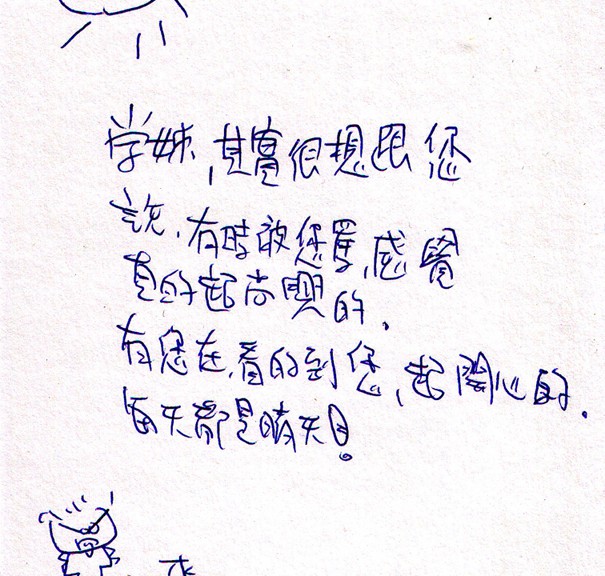 学姊,其實很想跟您
說,有時敢您罵,感覺
真的起尚興的.
有您在,看的到您,起開心的.
每天都是晴天!